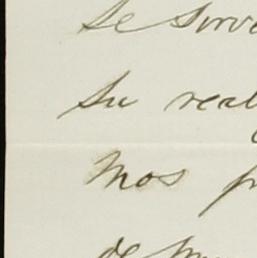 Se sirve
Su real
mos p
de